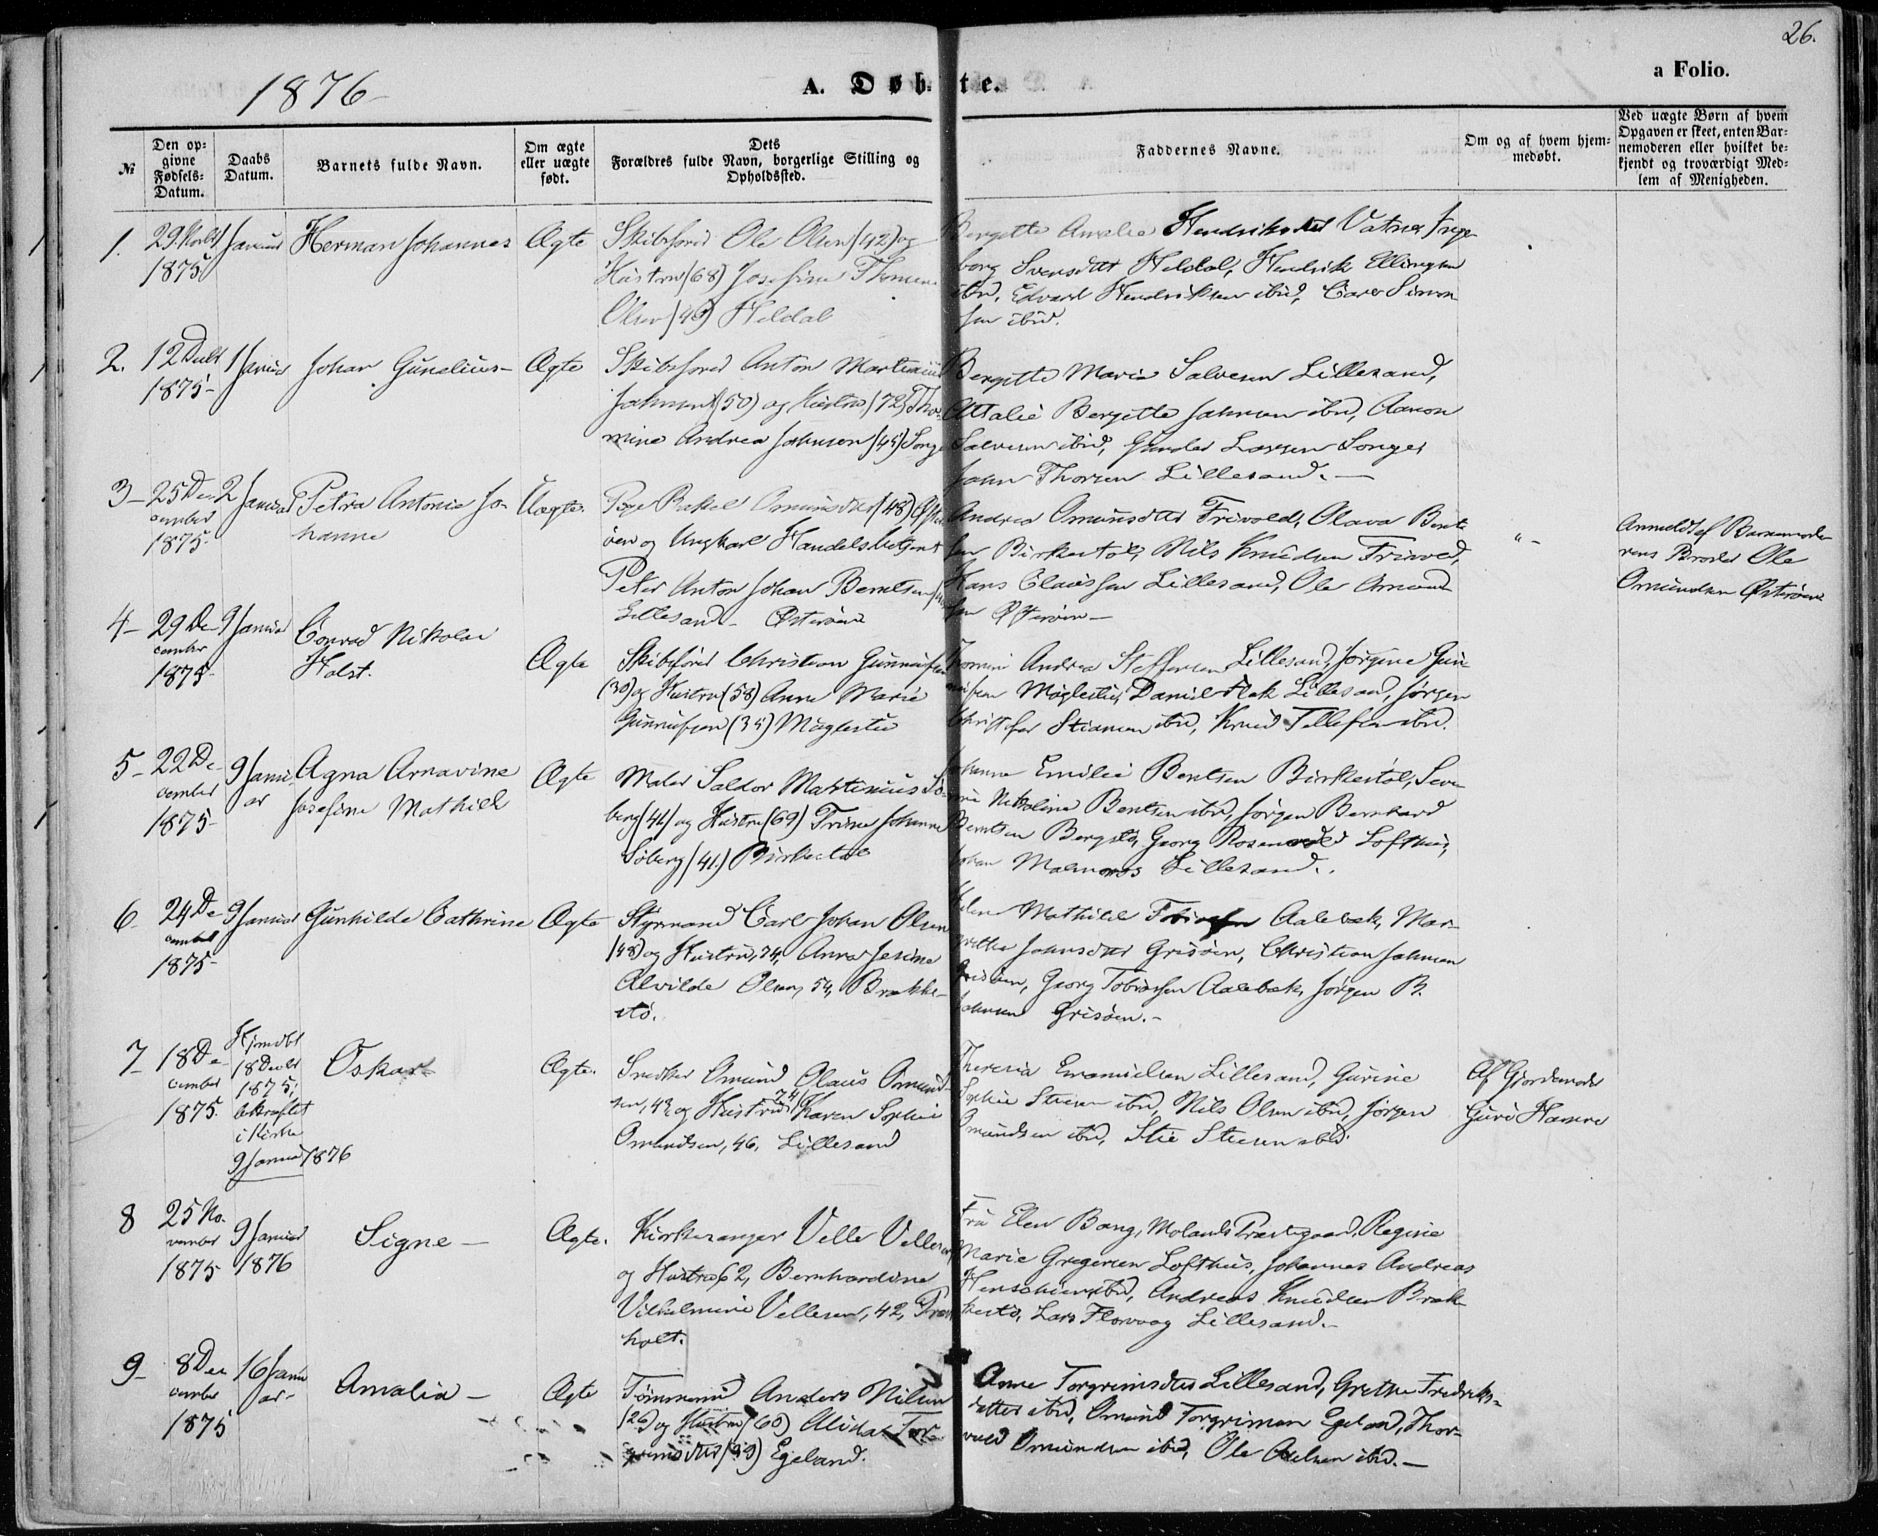 26.
1876
A. Døbte.
a Folio.
№
Den opgivne Fødsels-Datum.
Daabs Datum.
Barnets fulde Navn.
Om ægte eller uægte født.
Dets Forældres fulde Navn, borgerlige Stilling og Opholdssted.
Faddernes Navne.
Om og af hvem hjemmedøbt.
Ved uægte Børn af hvem Opgaven er skeet, enten Barnemoderen eller hvilket bekjendt og troværdigt Medlem af Menigheden.
1.
1875
Herman Johannes
Ægte
Skibsfører Ole Olsen (42) og
Hustru (68) Josefine
Olsen Heldal
Bergitte Amalie Hendriksdtt Vatne, Inge-
borg Svensdtt Heldal, Hendrik Ellingsen
ibid, Edvard Hendriksen ibid, Simon-
sen ibid.
2.
12 Decbr 1 Januar
1875
Johan
Ægte
Skibsfører Anton Martinius
Johnsen (50) og Hustru (72) Tho-
mine Andrea Johnsen (45) Songe
Bergitte Maria Salvesen Lillesand,
Attalie Bergitte Johnsen ibid, Aanon
Salvesen ibid, Gunder Larsen Songe,
John Thorsen Lillesand. —
3 —
25 De- 2 Januar
cember
1875.
Petra Antonia Jo-
hanne
Uægte.
Pige Rakel Omundsdtt (48) Øster-
øen og Ungkarl Handelsbetjent
Peter Anton Johan Berntsen
Lillesand — Østerøen
Andrea Omundsdtt Frivold, Olava Bent-
sen Birkestøl, Nils Knudsen Frivold,
Hans Claussen Lillesand, Ole Omund-
sen Østerøen —
" —
Anmeldt af Barnemode-
rens Broder Ole
Omundsen Østerøen
4 —
29 De- 9 Januar
cember
1875
Conrad Nikolai
Holst.
Ægte
Skibsfører Christian Gunnufsen
(30) og Hustru (58) Anne Marie
Gunnufsen (35) Møglestu
Thomine Andrea Steffensen Lillesand, Jørgine Gun-
nufsen Møglestu, Daniel Holst Lillesand, Jørgen
Christofer Stiansen ibid, Knud Tellefsen ibid.
5 —
22 De- 9 Janu-
cember ar
1875
Agna Arnavine
Josefine Mathilde
Ægte
Maler Saldor Martinius Sø-
berg (41) og Hustru (69) Trine Johanne
Søberg (41) Birkestøl
Johanna Emilie Bentsen Birkestøl, Seve-
rine Nikoline Bentsen ibid, Jørgen Bernhard
Berntsen Bergstø, Georg Rosenvold Lofthus,
Johan Malmros Lillesand.
6
24 De- 9 Januar
cember
1875
Gunhilde Cathrine
Ægte
Styrmand Carl Johan Olsen
(48) og Hustru, 74, Anna Jesine
Alvilde Olsen, 54, Brække-
stø.
Mathilde Tobiassen Aalebæk, Mar-
grethe Johnsdtt Grisøen, Christian Johnsen
Grisøen, Georg Tobiassen Aalebæk, Jørgen B.
Johnsen Grisøen. —
7
18 De-
cember
1875.
Hjemdbt
18 Decbr
1875,
bekræftet
i Kirke
9 Januar 1876
Oskar
Ægte.
Snedker Omund Olaus Omund-
sen, 43, og Hustru 74, Karen Sophie
Omundsen, 46, Lillesand
Theresia Emanuelsen Lillesand, Gurine
Sophie Steensen ibid, Nils Olsen ibid, Jørgen
Omundsen ibid, Stie Steensen ibid.
Af Gjordemoder
Guri Hamre
8
25 No- 9 Januar
vember
1875 1876
Signe —
Ægte.
Kirkesanger Velle Vellesen
og Hustru 62, Bernhardine
Vilhelmine Vellesen, 42,
holt.
Fru Elen Bang, Molands Præstegaard, Regine
Marie Gregersen Lofthus, Johannes Andreas
Henschien ibid, Andreas Knudsen Bræk-
kestø, Lars Florvaag Lillesand. —
9 —
8 De- 16 Janu-
cember ar
1875
Amalia —
Ægte
Tømmermd Anders Nilsen
(26) og Hustru (60), Alida Tor-
grimsdtt Egeland.
Anne Torgrimsdtt Lillesand, Grethe Fredriks-
datter ibid, Omund Torgrimsen Egeland, Thor-
vald Omundsen ibid, Ole ibid. —